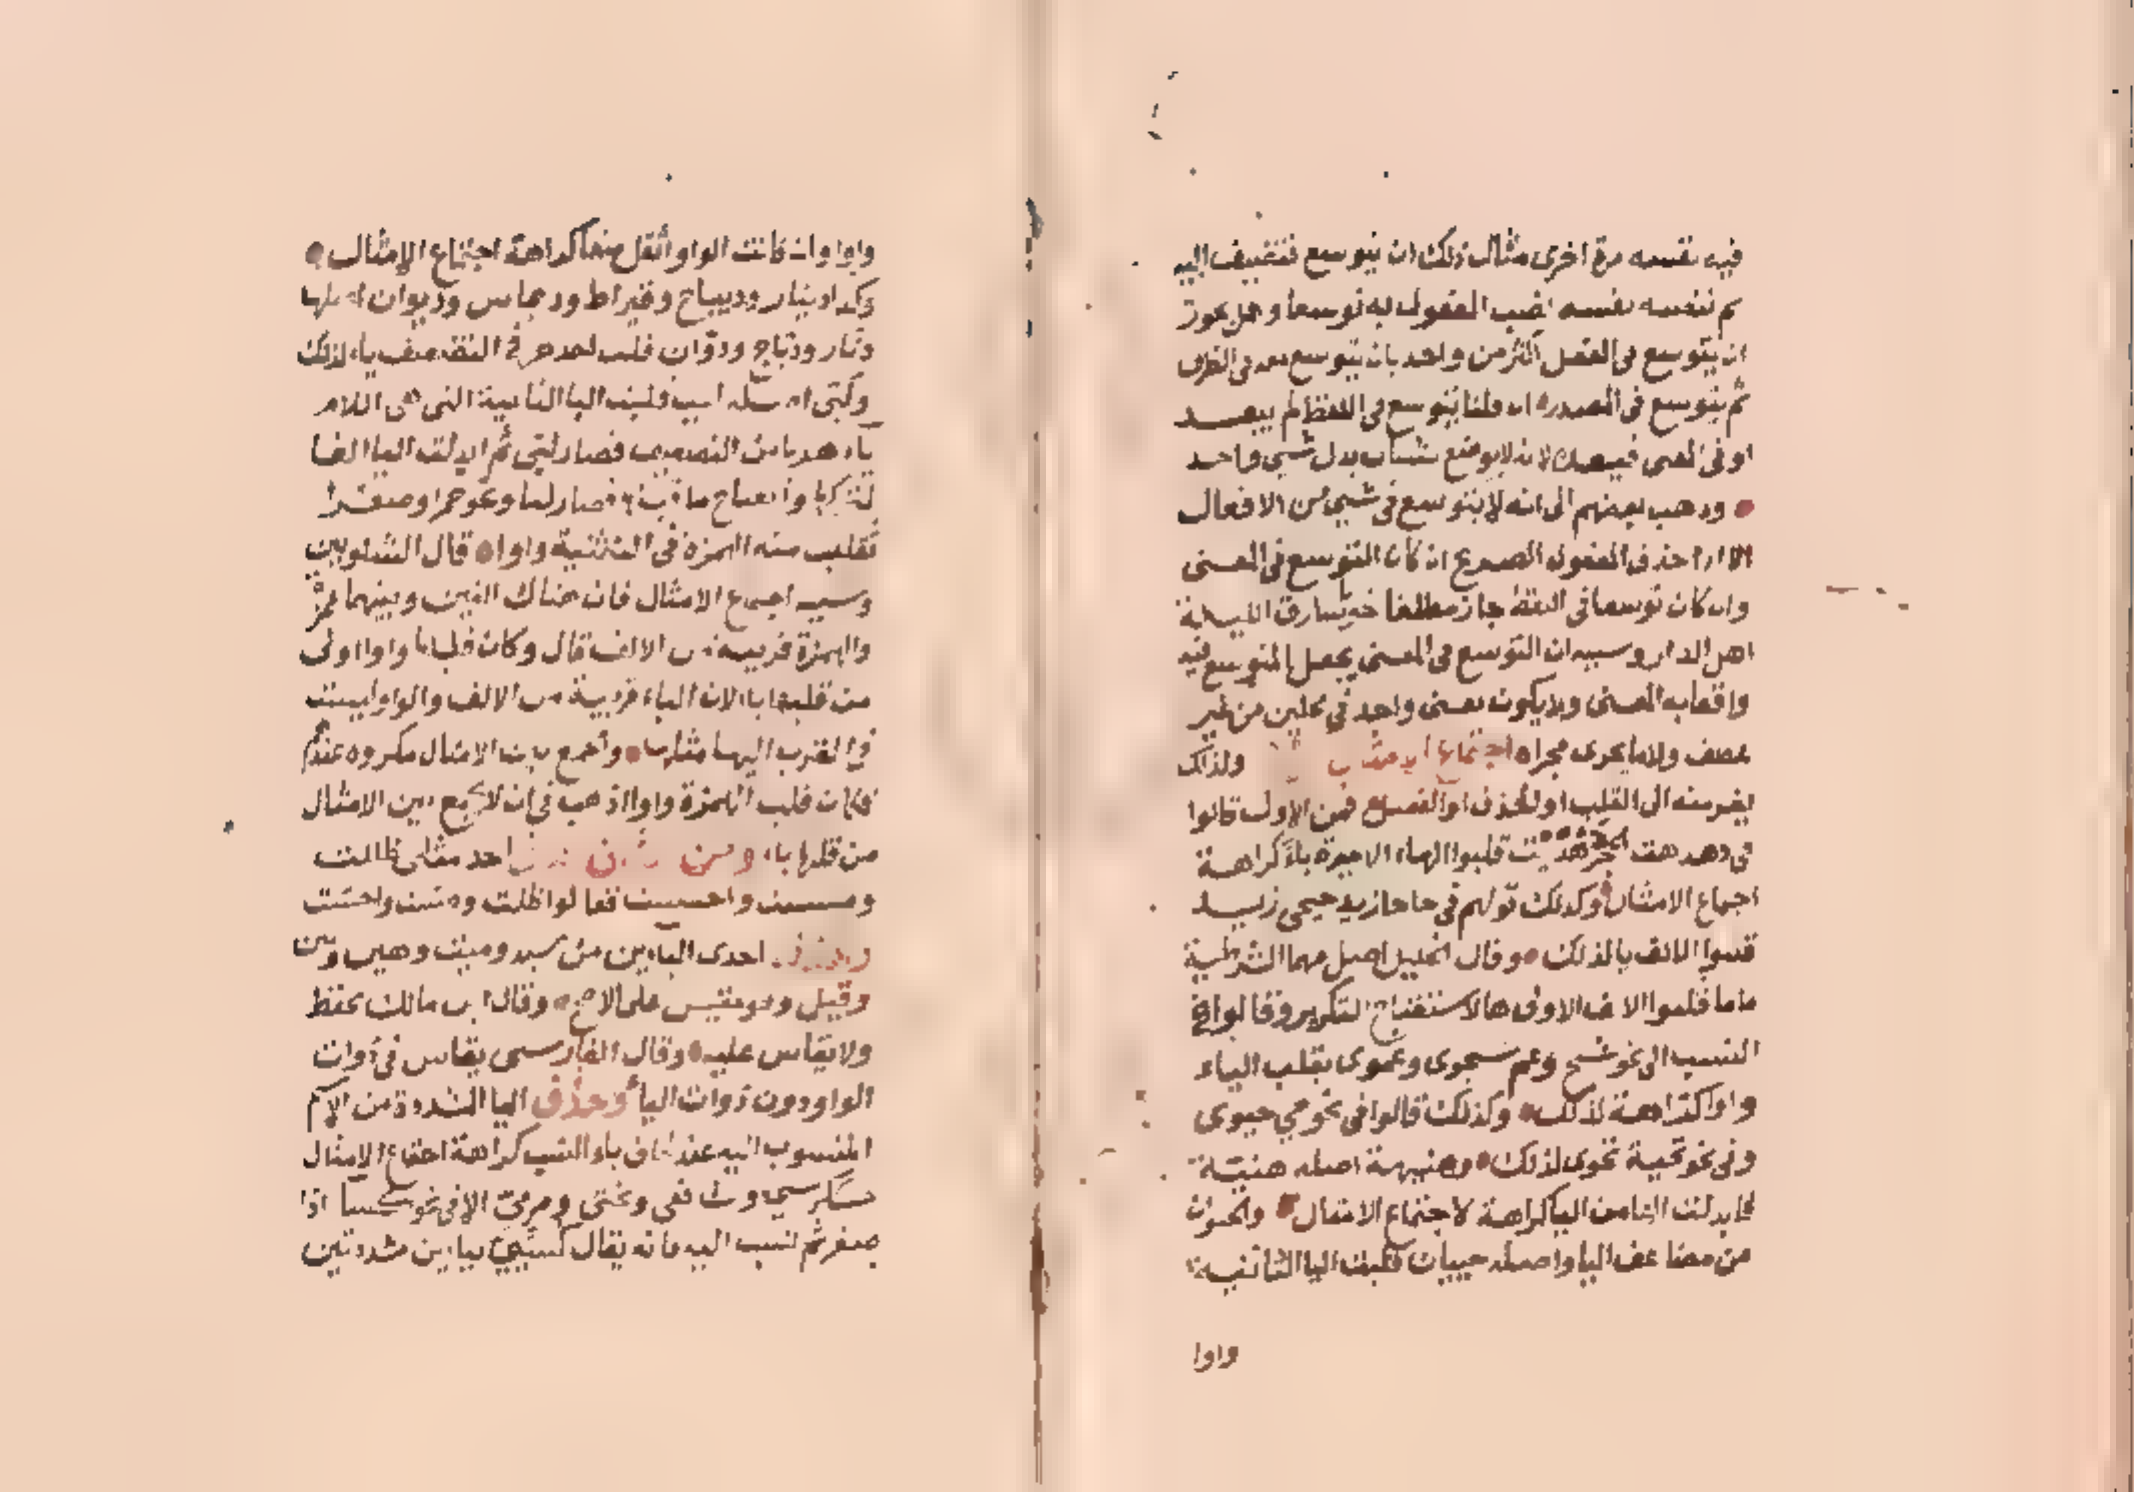 فيه نفسه مرة اخرى مثال ذلك ان يتوسع فتضيف اليه
ثم نفسه نصب المفعول به توسعا وهل يجوز
ان يتوسع فى الفعل اكثر من واحد بان يتوسع معه فى الظرف
ثم يتوسع فى المصدر ان قلنا يتوسع فى اللفظ لم يبعد
او فى المعنى فيبعد لانه لا يوضع شيئان بدل شيى واحد
وذهب بعضهم الى انه لا يتوسع فى شيى من الافعال
الا اذا حذف المفعول الصريح ان كان التوسع فى المعنى
وان كان توسعا فى اللفظ جاز مطلقا نحو يا سارق الليلة
اهل الدار وسببه ان التوسع فى المعنى يجعل المتوسع فيه
واقعا به المعنى ولا يكون معنى واحد فى محلين من غير
عطف ولا ما يجرى مجراه اجتماع الامثال ولذلك
يفر منه الى القلب او الحذف او الفصل فمن الاول قالوا
فى دهدهت قلبوا الهاء الاخيرة ياء كراهة
اجتماع الامثال وكذلك قولهم فى حاحا زيد حيحى زيد
قلبوا الالف يا لذلك وقال الخليل اصل مهما الشرطية
ماما قلبوا الالف الاولى ها لاستقباح التكرير وقالوا فى
النسب الى نحو شج وعم شجوى وعموى بقلب الياء
واوا كراهة لذلك وكذلك قالوا فى نحو حي حيوى
وفى نحو تحية تحوى لذلك وهنيهة اصله هنيّة
فابدلت الها من اليا كراهة لاجتماع الامثال والحيوان
من مضاعف اليا واصله حييان قلبت اليا الثانية
واوا
واوا وان كانت الواو أثقل منها كراهة اجتماع الامثال
وكذا دينار وديباج وقيراط وديماس وديوان اصلها
دنّار ودبّاج ودوّان قلب احد حرفى التضعيف ياء لذلك
ولبّى اصله لبب قلبت البا الثانية التى هى اللام
ياء هربا من التضعيف فصار لبّى ثم ابدلت اليا الفا
لتحركها وانفتاح ما قبلها فصار لبا ونحو حمرا وصفرا
تقلب منه الهمزة فى التثنية واوا قال الشلوبين
وسببه اجتماع الامثال فان هناك الفين وبينهما همزة
والهمزة قريبة من الالف قال وكان قلبها واوا اولى
من قلبها يا لان الياء قريبة من الالف والواو ليست
فى القرب اليها مثلها والجمع بين الامثال مكروه عندهم
فكان قلب الهمزة واوا اذهب فى ان لا يجمع بين الامثال
من قلبها ياء ومن الثانى حذف احد مثلى ظللت
ومسست واحسست فقالوا ظلت ومست واحست
وحذف احدى الياءين من سيد وميت وهين ولين
وقيل وهو مقيس على الاصح وقال ابن مالك يحفظ
ولا يقاس عليه وقال الفارسى يقاس فى ذوات
الواو دون ذوات اليا وحذف اليا المشددة من الاسم
المنسوب اليه عند الحاق ياء النسب كراهة اجتماع الامثال
ككرسى وشافعى وبختى ومرمىّ الا فى نحو كسا اذا
صغر ثم نسب اليه فانه يقال كسيّيّ بياءين مشددتين